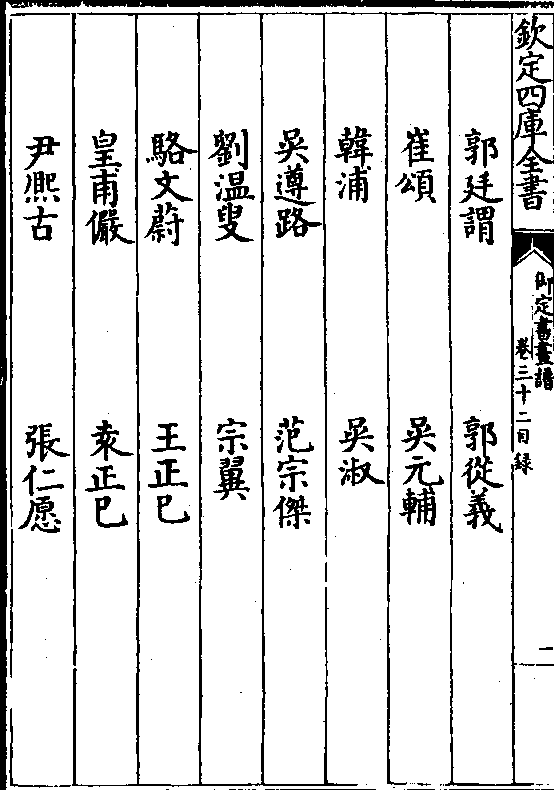 欽定四庫全書
御定書畫譜
卷三十二目録
一
郭廷謂　郭從義
崔頌　吳元輔
韓浦　吳淑
吳遵路　范宗傑
劉温叟　宗翼
駱文蔚　王正巳
皇甫儼　袁正巳
尹熈古　張仁愿